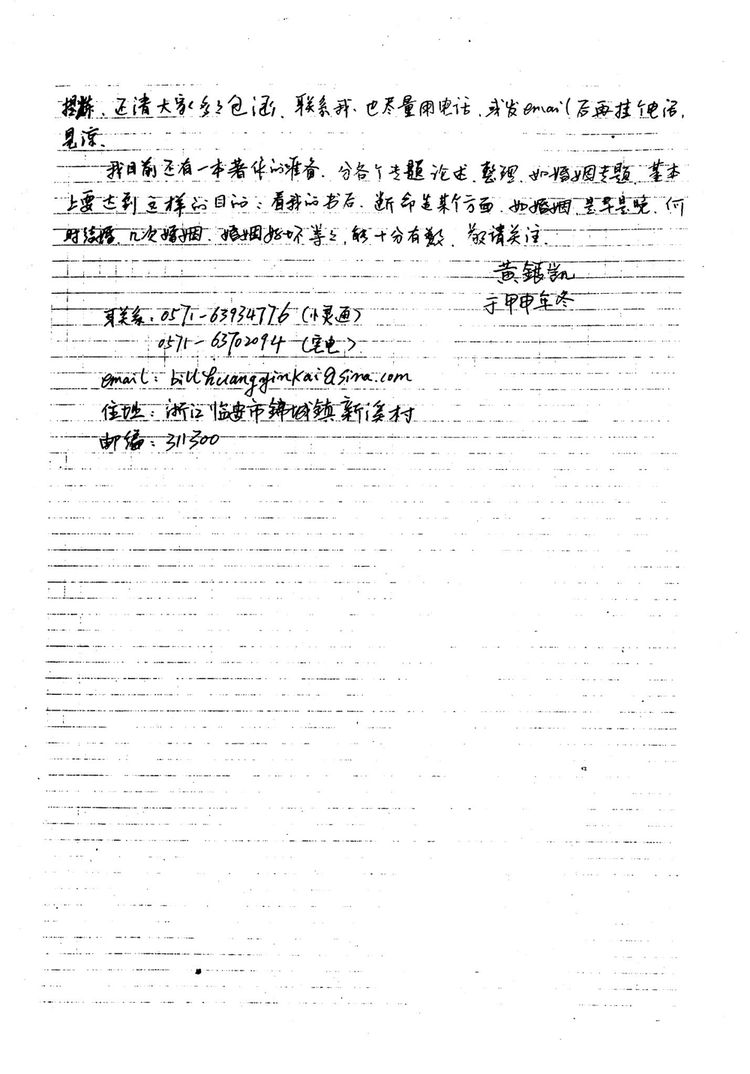 还请大家多多包涵、联系我、也尽量用电话，或发email后再挂个电话，
见谅。
我目前还有一本著作的准备．分各个专题论述、整理．如婚姻专题．基本
上要达到这样的目的：看我的书后．断命造某个方面．如婚姻．是早是晚．何
时结婚．几次婚姻．婚姻好坏等等，能十分有数．敬请关注．
黄银凯
于甲申年冬
联系：0571-63934776（小灵通）
0571-63702094（宅电）
email：billhuangyinkai@sina.com
住址：浙江临安市锦城镇新溪村
邮编：311300